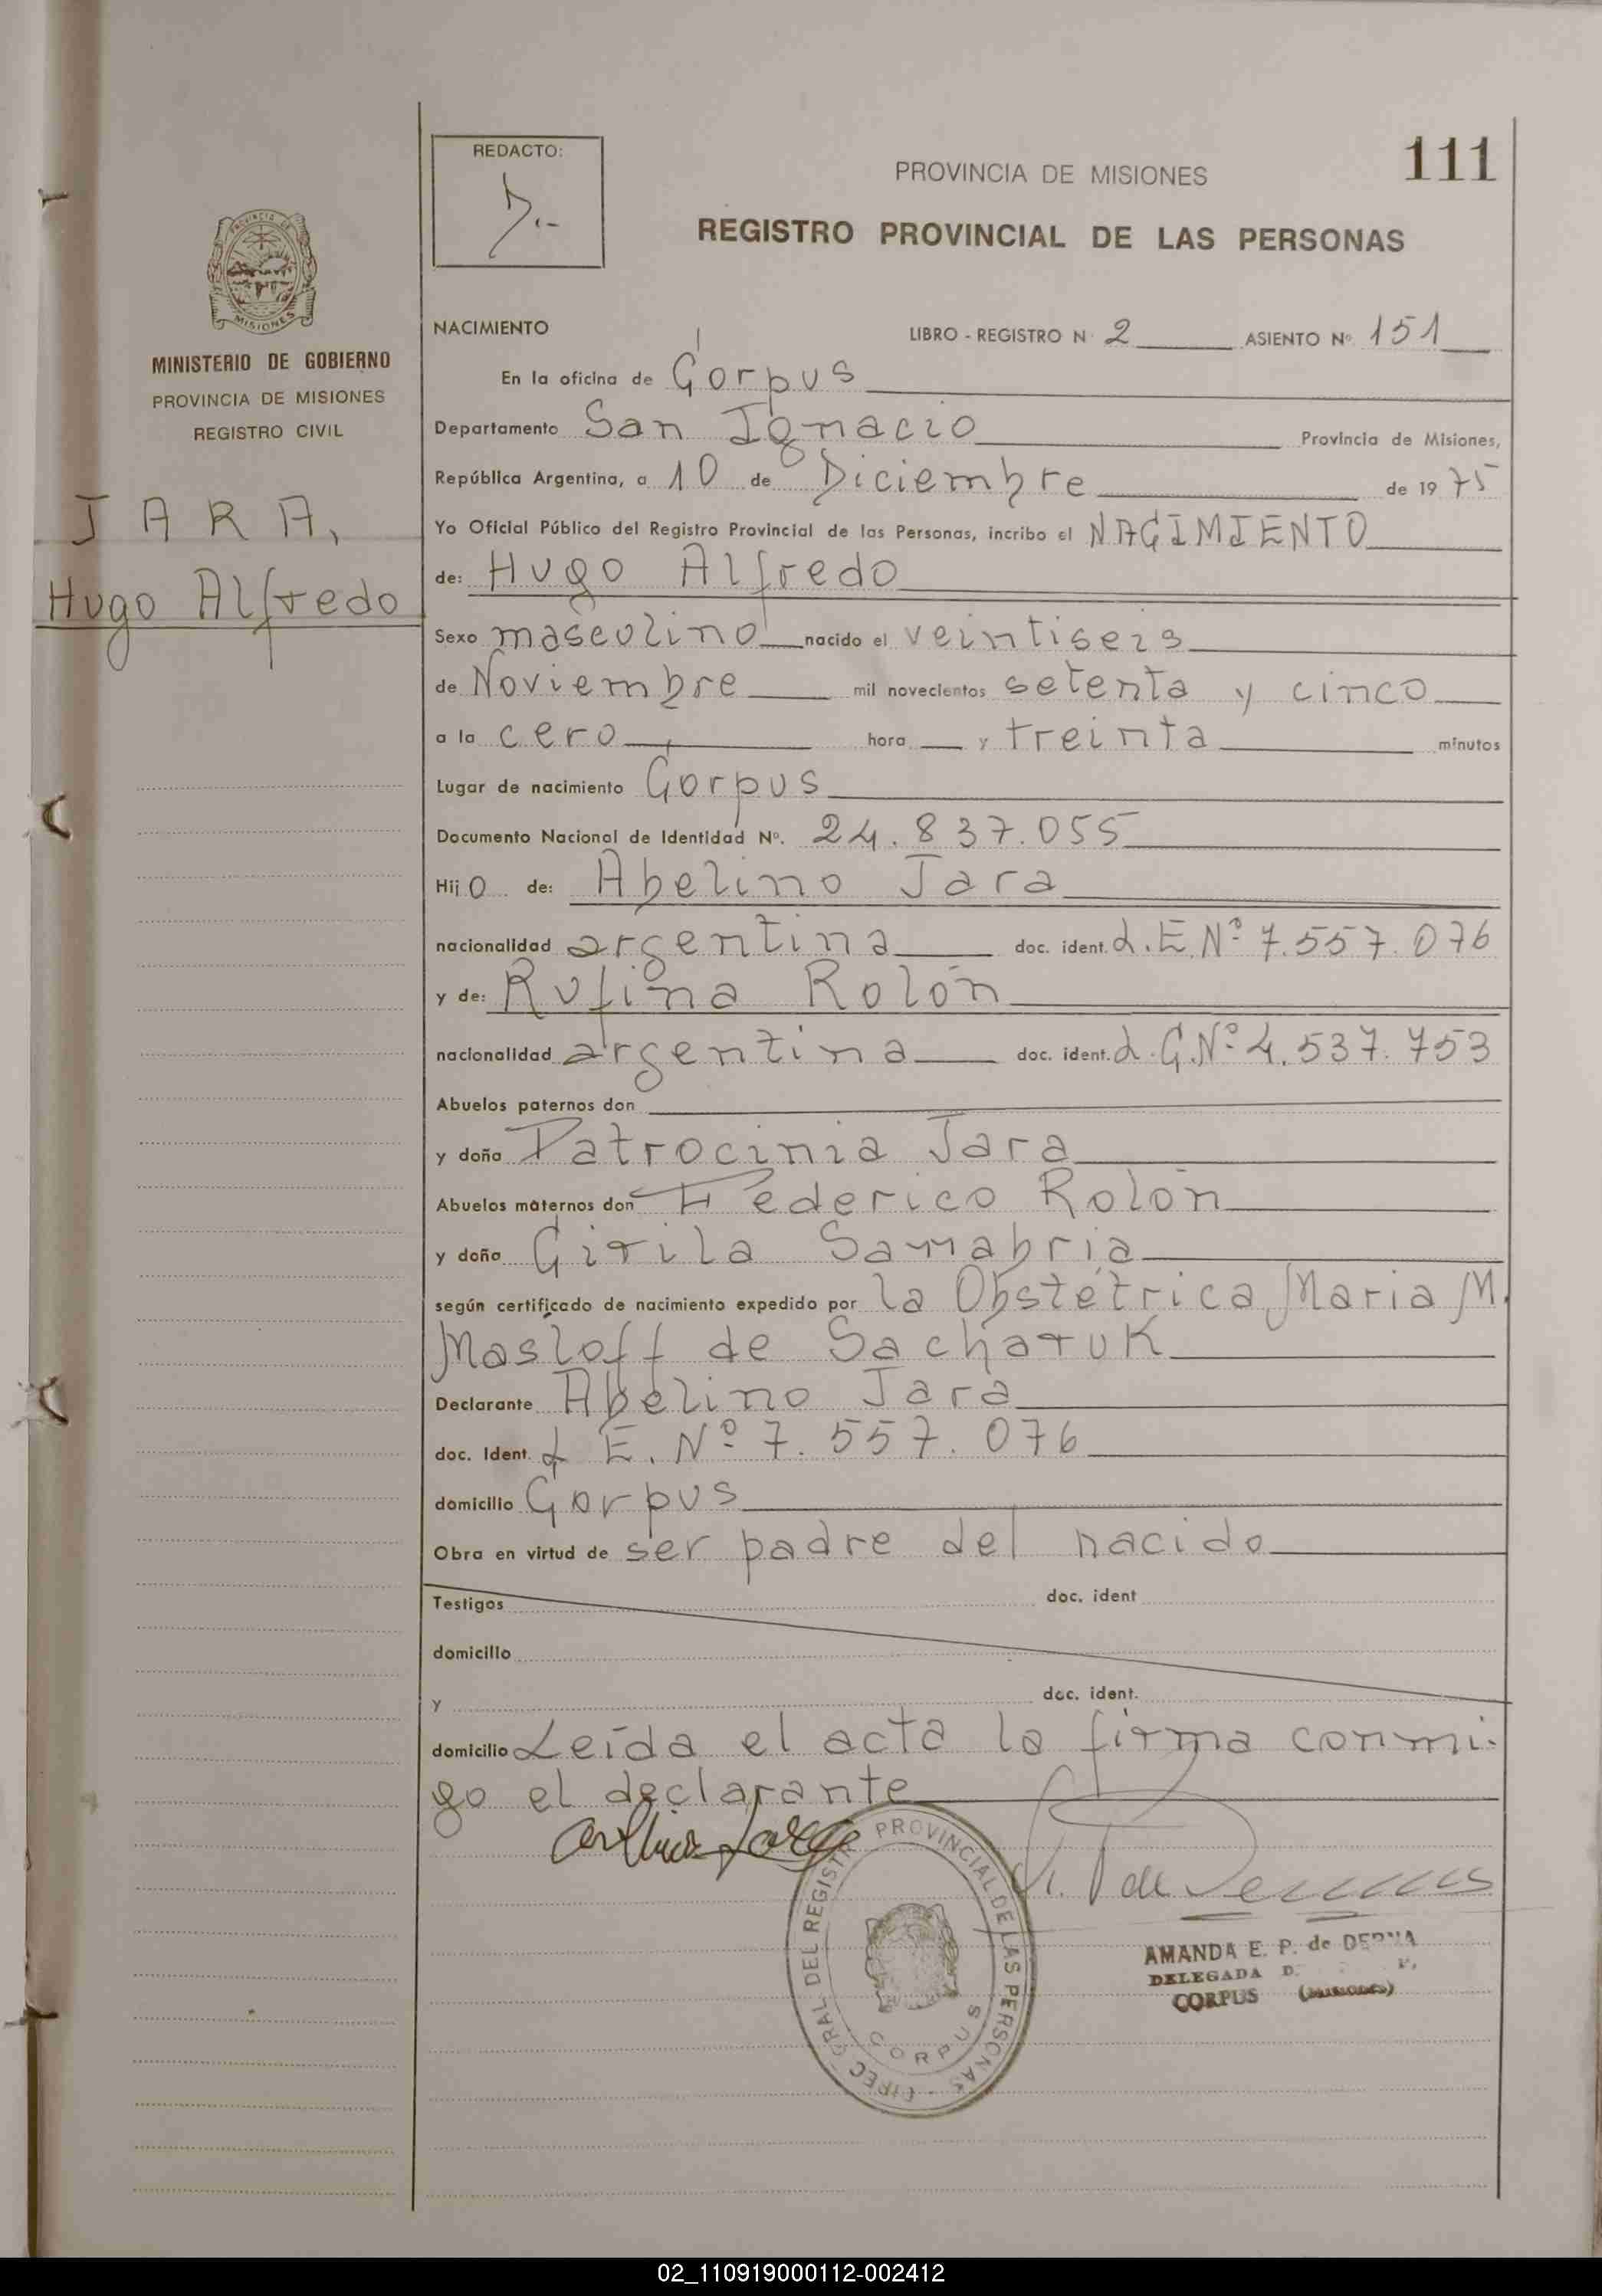 REDACTO:
PROVINCIA DE MISIONES
111
REGISTRO PROVINCIAL DE LAS PERSONAS
PROVINCIA DE
MISIONES
MINISTERIO DE GOBIERNO
PROVINCIA DE MISIONES
REGISTRO CIVIL
JARA,
Hugo Alfredo
NACIMIENTO LIBRO - REGISTRO N° 2 ASIENTO Nº 151
En la oficina de Corpus
Departamento San Ignacio Provincia de Misiones,
República Argentina, a 10 de Diciembre de 1975
Yo Oficial Público del Registro Provincial de las Personas, incribo el NACIMIENTO
de: Hugo Alfredo
Sexo masculino nacido el veintiseis
de Noviembre mil novecientos setenta y cinco
a la cero hora y treinta minutos
Lugar de nacimiento Corpus
Documento Nacional de Identidad Nº. 24.837.055
Hijo de: Abelino Jara
nacionalidad argentina doc. ident. L.E.Nº 7.557.076
y de: Rufina Rolón
nacionalidad argentina doc. ident. L.C.Nº 4.537.753
Abuelos paternos don
y doña Patrocinia Jara
Abuelos maternos don Federico Rolón
y doña Cirila Samabria
según certificado de nacimiento expedido por la Obstétrica Maria M.
Masloff de Sacharuk
Declarante Abelino Jara
doc. Ident. L E. Nº 7.557.076
domicilio Corpus
Obra en virtud de ser padre del nacido
Testigos doc. ident
domicilio
y doc. ident.
domicilio Leída el acta la firma conmi-
go el declarante
PROVINCIAL DE LAS PERSONAS
GRAL DEL REGISTR
CORPUS
AMANDA E. P. de
DELEGADA
CORPUS (MISIONES)
02_110919000112-002412